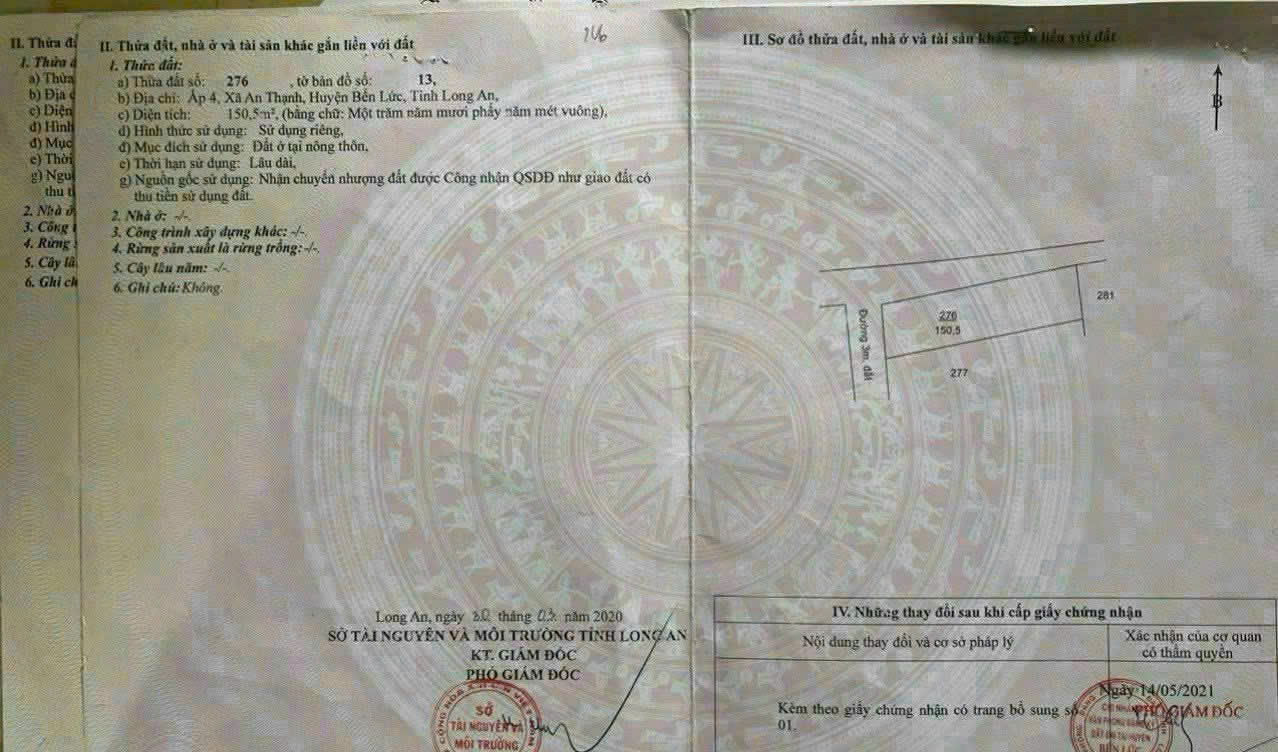 II. Thửa đ
1. Thửa đ
a) Thửa
b) Địa c
c) Diện
d) Hình
đ) Mục
e) Thời
g) Nguồ
thu t
2. Nhà ở
3. Công t
4. Rừng
5. Cây lâ
6. Ghi ch
II. Thửa đất, nhà ở và tài sản khác gắn liền với đất
1. Thửa đất:
a) Thửa đất số: 276 , tờ bản đồ số: 13,
b) Địa chỉ: Ấp 4, Xã An Thạnh, Huyện Bến Lức, Tỉnh Long An,
c) Diện tích: 150,5m², (bằng chữ: Một trăm năm mươi phẩy năm mét vuông),
d) Hình thức sử dụng: Sử dụng riêng,
đ) Mục đích sử dụng: Đất ở tại nông thôn,
e) Thời hạn sử dụng: Lâu dài,
g) Nguồn gốc sử dụng: Nhận chuyển nhượng đất được Công nhận QSDĐ như giao đất có
thu tiền sử dụng đất.
2. Nhà ở: -/-.
3. Công trình xây dựng khác: -/-.
4. Rừng sản xuất là rừng trồng: -/-.
5. Cây lâu năm: -/-.
6. Ghi chú: Không.
Long An, ngày 20 tháng 03 năm 2020
SỞ TÀI NGUYÊN VÀ MÔI TRƯỜNG TỈNH LONG AN
KT. GIÁM ĐỐC
PHÓ GIÁM ĐỐC
SỞ
TÀI NGUYÊN VÀ
MÔI TRƯỜNG
III. Sơ đồ thửa đất, nhà ở và tài sản khác gắn liền với đất
B
281
276
150,5
Đường 3m, đất
277
IV. Những thay đổi sau khi cấp giấy chứng nhận
Nội dung thay đổi và cơ sở pháp lý
Xác nhận của cơ quan
có thẩm quyền
Kèm theo giấy chứng nhận có trang bổ sung số
01.
Ngày 14/05/2021
PHÓ GIÁM ĐỐC